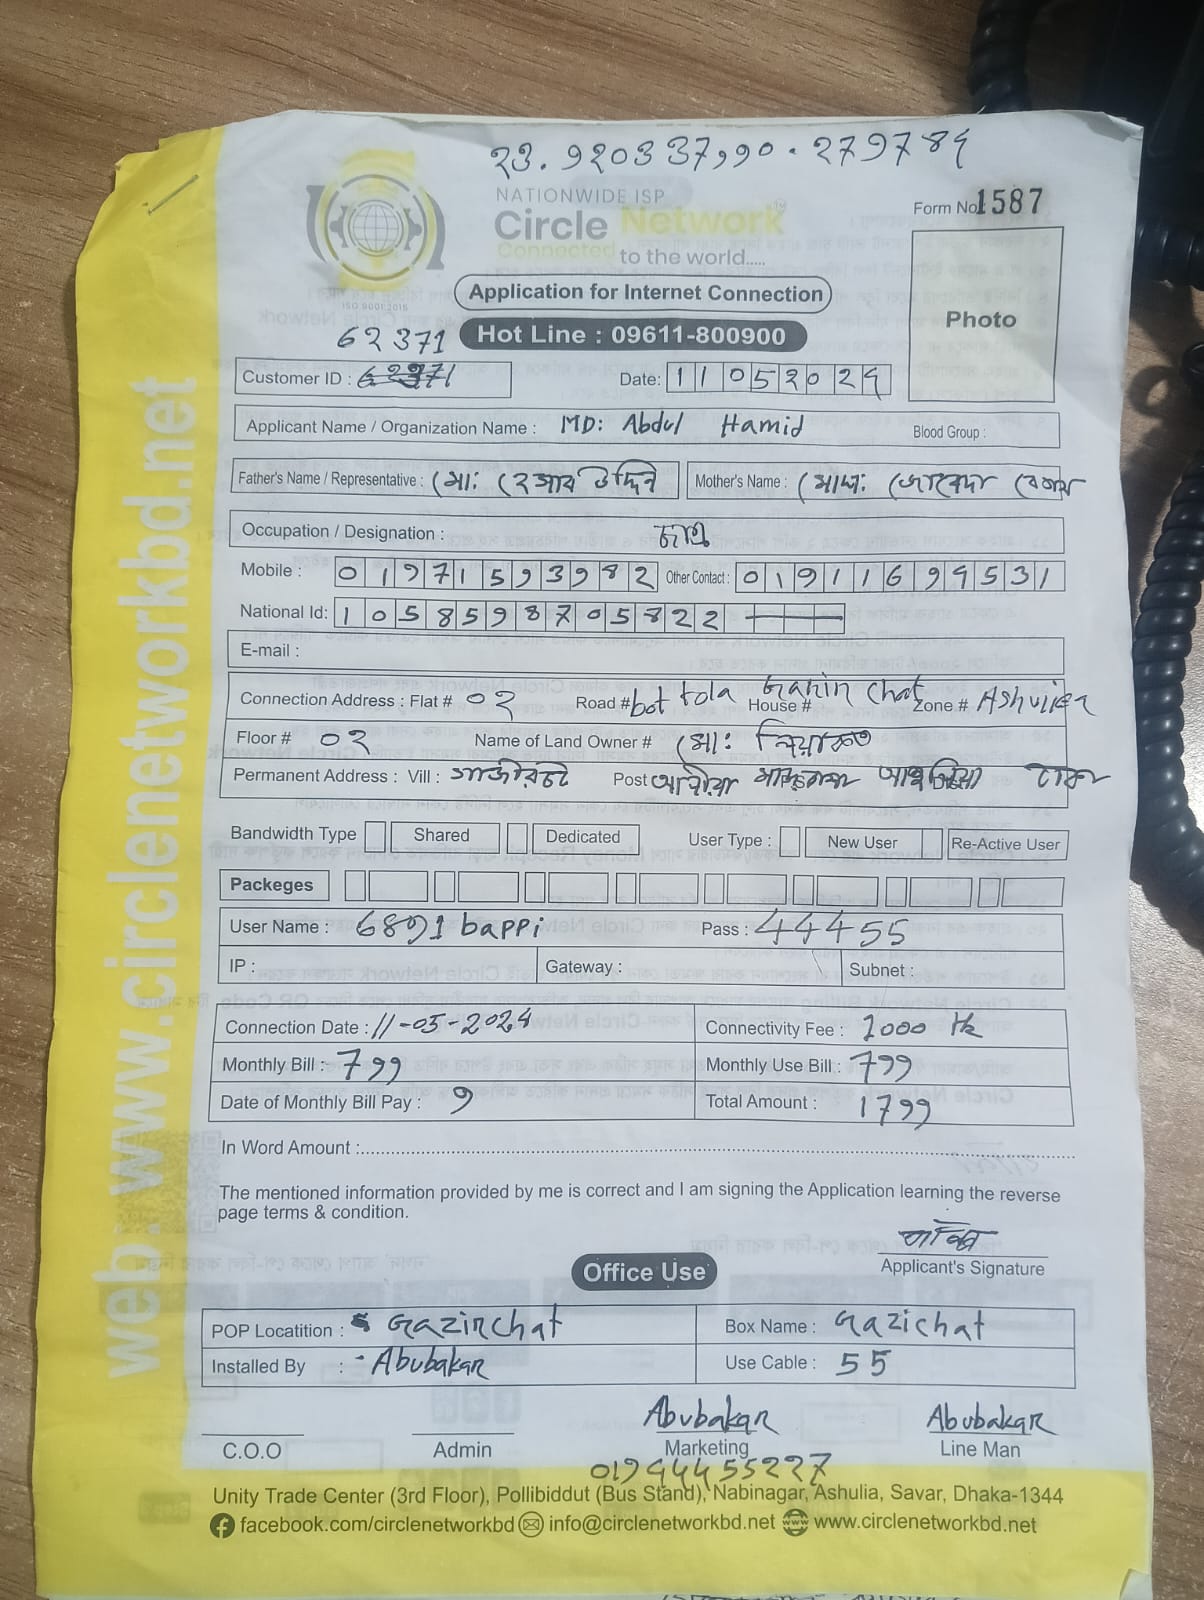 23.920337,90.279784
NATIONWIDE ISP
Circle Network
Connected to the world.....
Form No 1587
ISO 9001:2015
Application for Internet Connection
Photo
Hot Line : 09611-800900
62371
Customer ID : 62371 Date: 11052024
Applicant Name / Organization Name : MD: Abdul Hamid Blood Group :
Father's Name / Representative : মো: উদ্দিন Mother's Name : মোছা: বেগম
Occupation / Designation :
Mobile : 01971593982 Other Contact : 01911699531
National Id: 1058598705822
E-mail :
Connection Address : Flat # 02 Road # bot tola Gazir chat House # Zone # Ashulia
Floor # 02 Name of Land Owner # মো: লিয়াকত
Permanent Address : Vill : গাজীরচট Post আলীয়া মাদ্রাসা আশুলিয়া ঢাকা
Bandwidth Type Shared Dedicated User Type : New User Re-Active User
Packeges
User Name : 6891bappi Pass : 44455
IP : Gateway : Subnet :
Connection Date : 11-05-2024 Connectivity Fee : 1000 tk
Monthly Bill : 799 Monthly Use Bill : 799
Date of Monthly Bill Pay : 9 Total Amount : 1799
In Word Amount :
The mentioned information provided by me is correct and I am signing the Application learning the reverse
page terms & condition.
Applicant's Signature
Office Use
POP Locatition : Gazirchat Box Name : Gazichat
Installed By : Abubakar Use Cable : 55
Abubakar Abubakar
C.O.O Admin Marketing Line Man
01944455227
Unity Trade Center (3rd Floor), Pollibiddut (Bus Stand), Nabinagar, Ashulia, Savar, Dhaka-1344
facebook.com/circlenetworkbd info@circlenetworkbd.net www.circlenetworkbd.net
web: www.circlenetworkbd.net